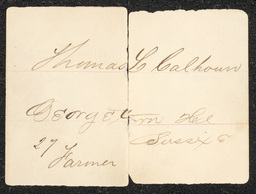 Thomas L Calhoun
Georgetown Del
Sussex Co
27
Farmer